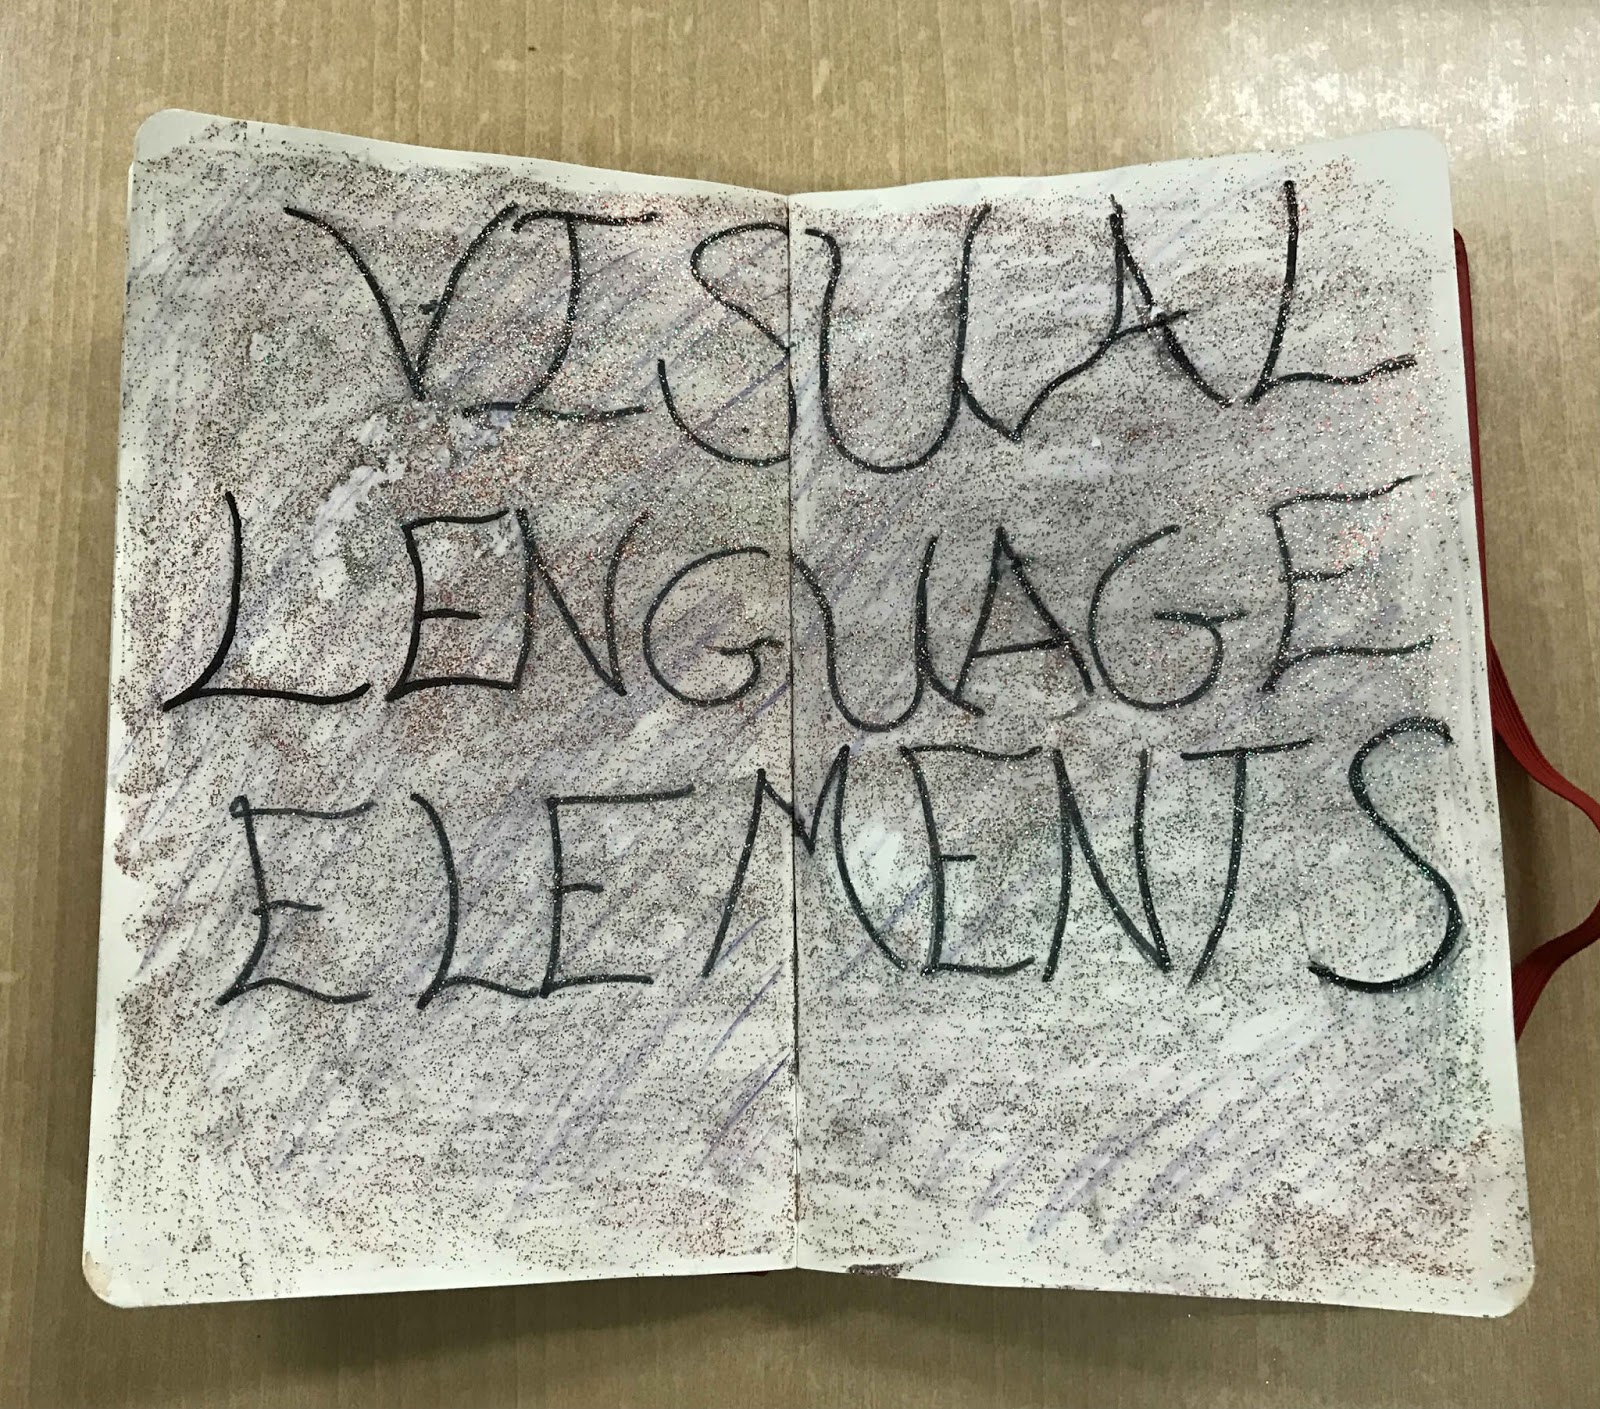 VISUAL
LENGUAGE
ELEMENTS